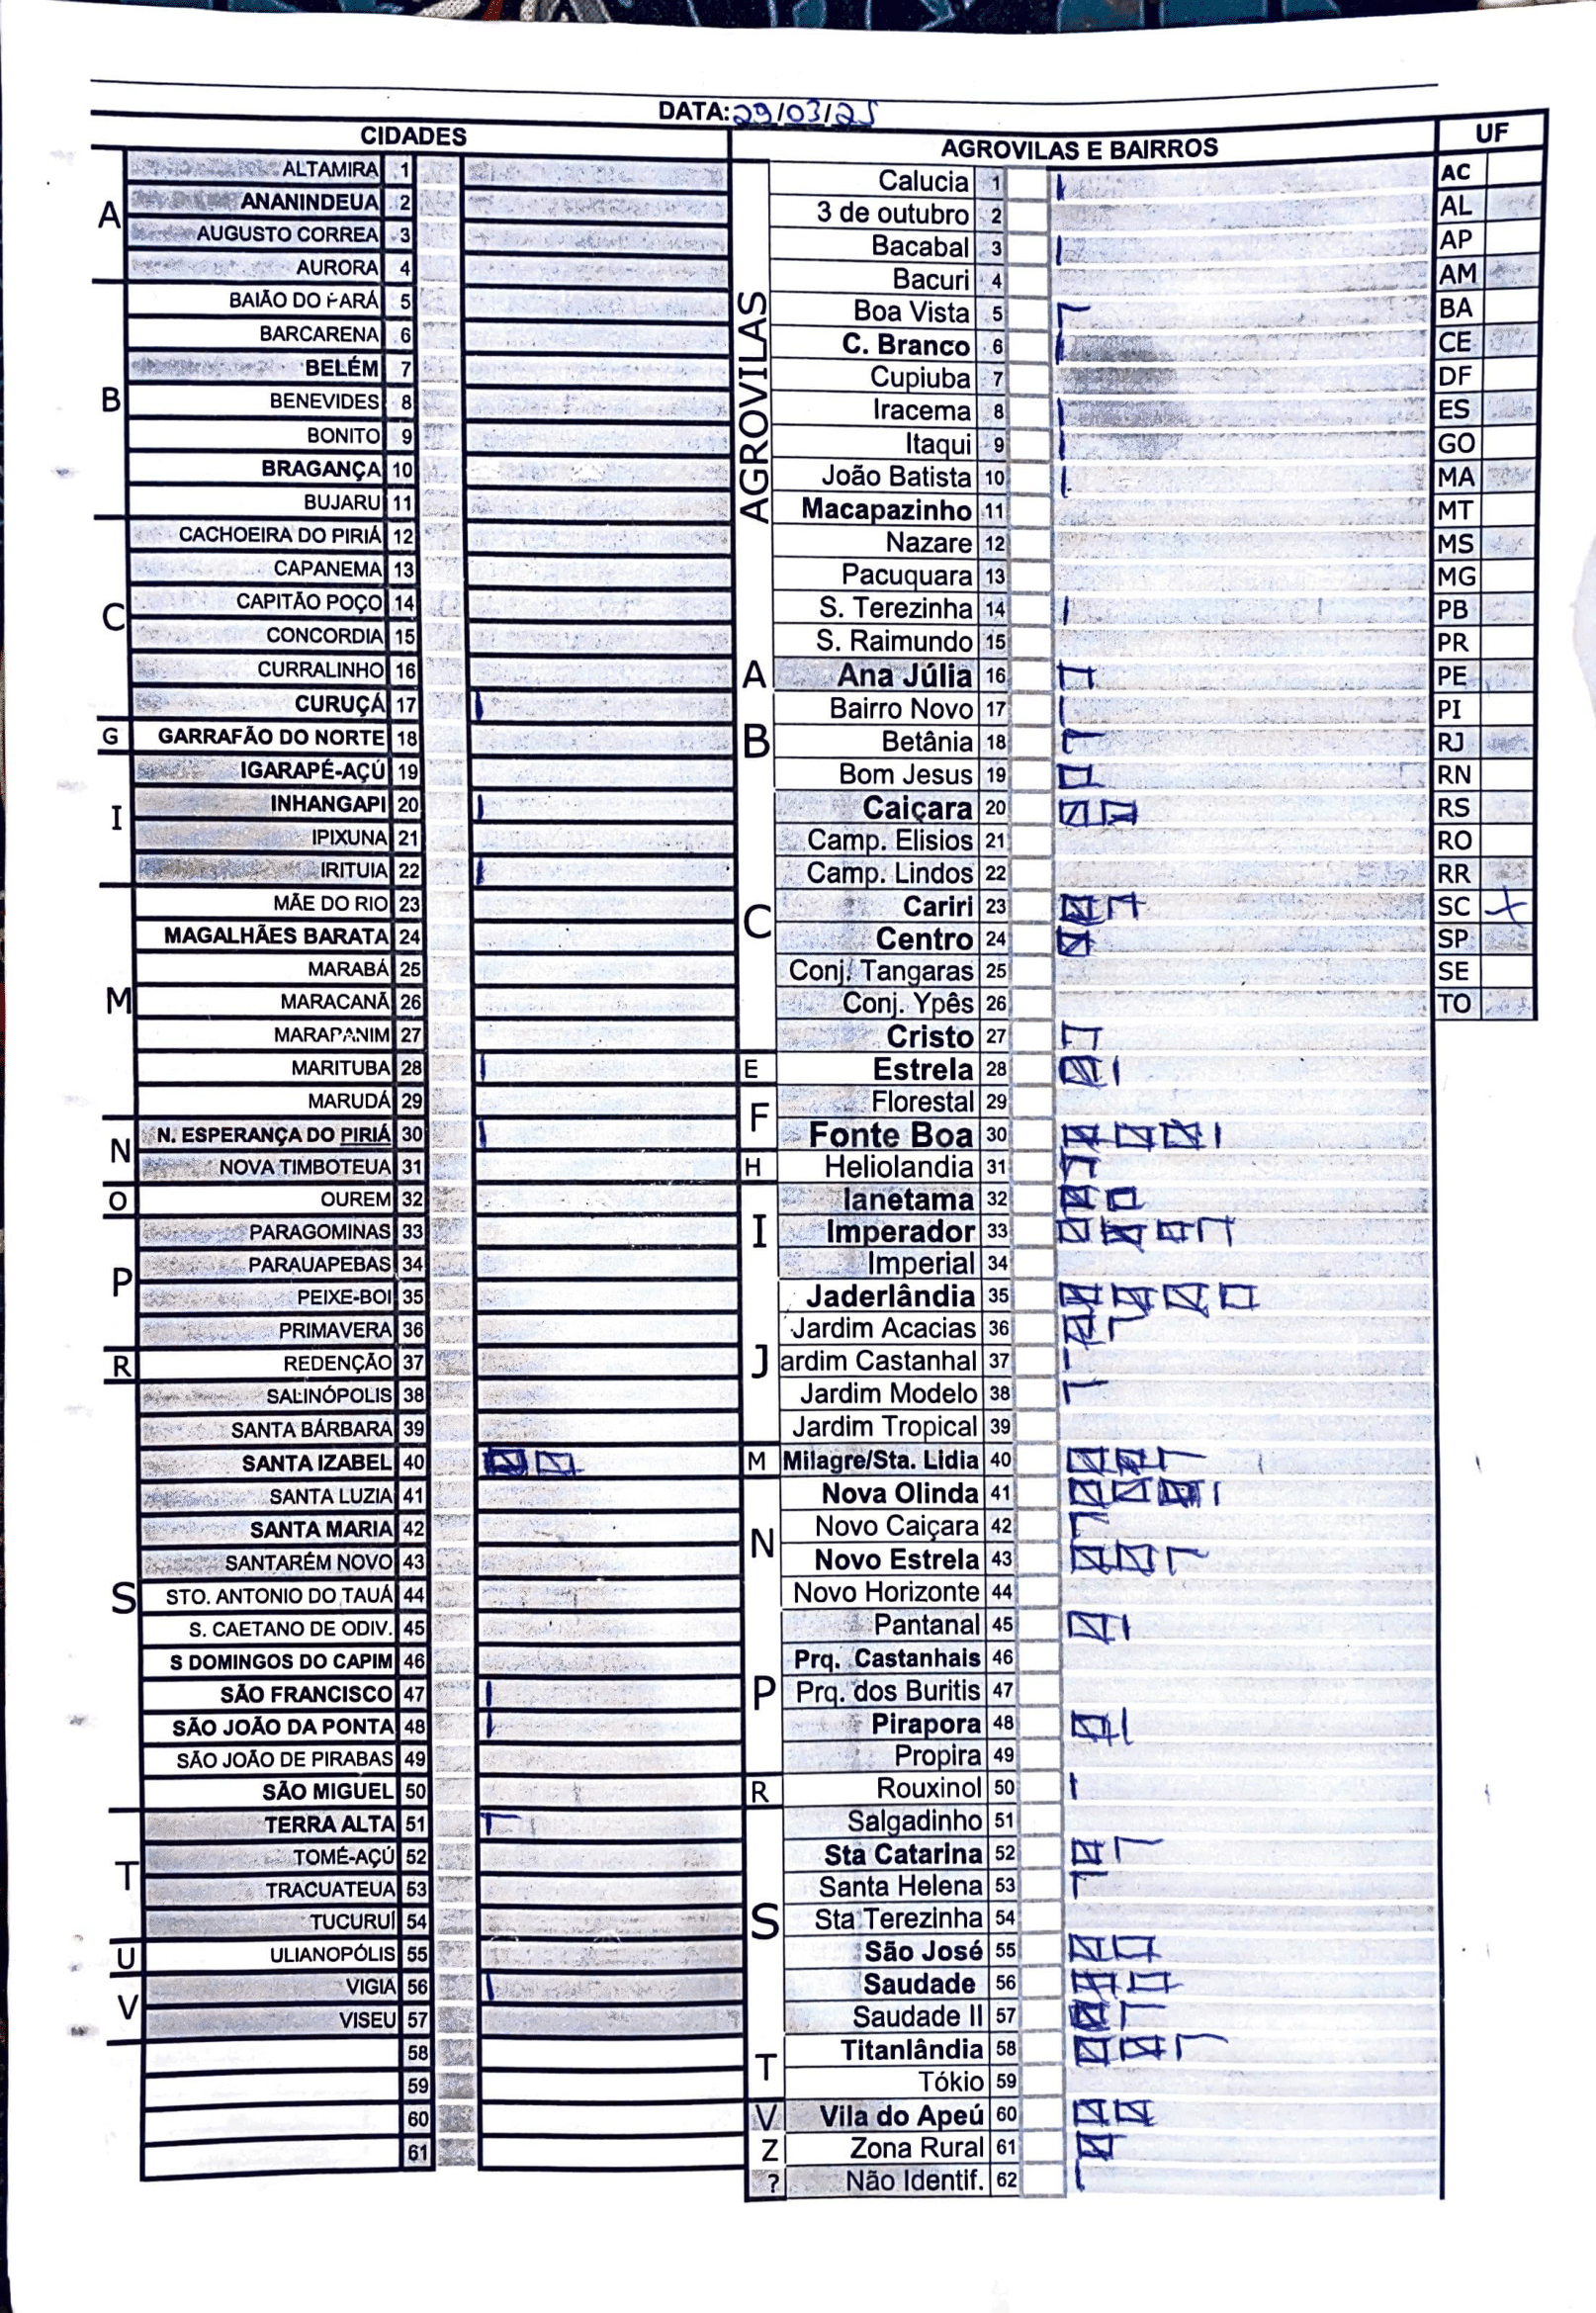 DATA: 29/03/25
CIDADES
A
ALTAMIRA 1
ANANINDEUA 2
AUGUSTO CORREA 3
AURORA 4
B
BAIÃO DO PARÁ 5
BARCARENA 6
BELÉM 7
BENEVIDES 8
BONITO 9
BRAGANÇA 10
BUJARU 11
C
CACHOEIRA DO PIRIÁ 12
CAPANEMA 13
CAPITÃO POÇO 14
CONCORDIA 15
CURRALINHO 16
CURUÇÁ 17
G
GARRAFÃO DO NORTE 18
I
IGARAPÉ-AÇÚ 19
INHANGAPI 20
IPIXUNA 21
IRITUIA 22
M
MÃE DO RIO 23
MAGALHÃES BARATA 24
MARABÁ 25
MARACANÃ 26
MARAPANIM 27
MARITUBA 28
MARUDÁ 29
N
N. ESPERANÇA DO PIRIÁ 30
NOVA TIMBOTEUA 31
O
OUREM 32
P
PARAGOMINAS 33
PARAUAPEBAS 34
PEIXE-BOI 35
PRIMAVERA 36
R
REDENÇÃO 37
S
SALINÓPOLIS 38
SANTA BÁRBARA 39
SANTA IZABEL 40
SANTA LUZIA 41
SANTA MARIA 42
SANTARÉM NOVO 43
STO. ANTONIO DO TAUÁ 44
S. CAETANO DE ODIV. 45
S DOMINGOS DO CAPIM 46
SÃO FRANCISCO 47
SÃO JOÃO DA PONTA 48
SÃO JOÃO DE PIRABAS 49
SÃO MIGUEL 50
T
TERRA ALTA 51
TOMÉ-AÇÚ 52
TRACUATEUA 53
TUCURUÍ 54
U
ULIANOPÓLIS 55
V
VIGIA 56
VISEU 57
58
59
60
61
AGROVILAS E BAIRROS
AGROVILAS
Calucia 1
3 de outubro 2
Bacabal 3
Bacuri 4
Boa Vista 5
C. Branco 6
Cupiuba 7
Iracema 8
Itaqui 9
João Batista 10
Macapazinho 11
Nazare 12
Pacuquara 13
S. Terezinha 14
S. Raimundo 15
A
Ana Júlia 16
B
Bairro Novo 17
Betânia 18
Bom Jesus 19
C
Caiçara 20
Camp. Elisios 21
Camp. Lindos 22
Cariri 23
Centro 24
Conj. Tangaras 25
Conj. Ypês 26
Cristo 27
E
Estrela 28
F
Florestal 29
Fonte Boa 30
H
Heliolandia 31
I
Ianetama 32
Imperador 33
Imperial 34
J
Jaderlândia 35
Jardim Acacias 36
ardim Castanhal 37
Jardim Modelo 38
Jardim Tropical 39
M
Milagre/Sta. Lidia 40
N
Nova Olinda 41
Novo Caiçara 42
Novo Estrela 43
Novo Horizonte 44
P
Pantanal 45
Prq. Castanhais 46
Prq. dos Buritis 47
Pirapora 48
Propira 49
R
Rouxinol 50
S
Salgadinho 51
Sta Catarina 52
Santa Helena 53
Sta Terezinha 54
São José 55
Saudade 56
Saudade II 57
T
Titanlândia 58
Tókio 59
V
Vila do Apeú 60
Z
Zona Rural 61
?
Não Identif. 62
UF
AC
AL
AP
AM
BA
CE
DF
ES
GO
MA
MT
MS
MG
PB
PR
PE
PI
RJ
RN
RS
RO
RR
SC X
SP
SE
TO